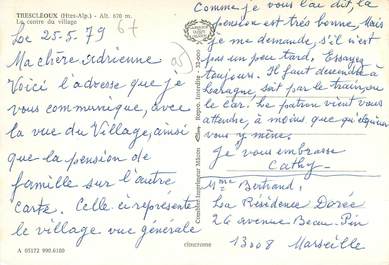 TRESCLÉOUX (Htes-Alp.) - Alt. 670 m.
Le centre du village
Le 25.5.79
67
Ma chère Adrienne
Voici l'adresse que je
vous communique, avec
la vue du Village, ainsi
que la pension de
famille sur l'autre
carte. Celle ci représente
le village vue générale
A 05172 990.6180
Combier Imprimeur Mâcon
cimcrome
Comme je vous l'ai dit, la
pension est très bonne. Mais
je me demande, s'il n'est
pas un peu tard. Essayez
toujours. Il faut descendre à
Laragne, soit par le train, ou
le car. Le patron vient vous
attendre, à moins que quelqu'un
vous y mène.
Je vous embrasse
Cathy
Mme Bertrand,
La Résidence Dorée
26 avenue Beau-Pin
13008 Marseille